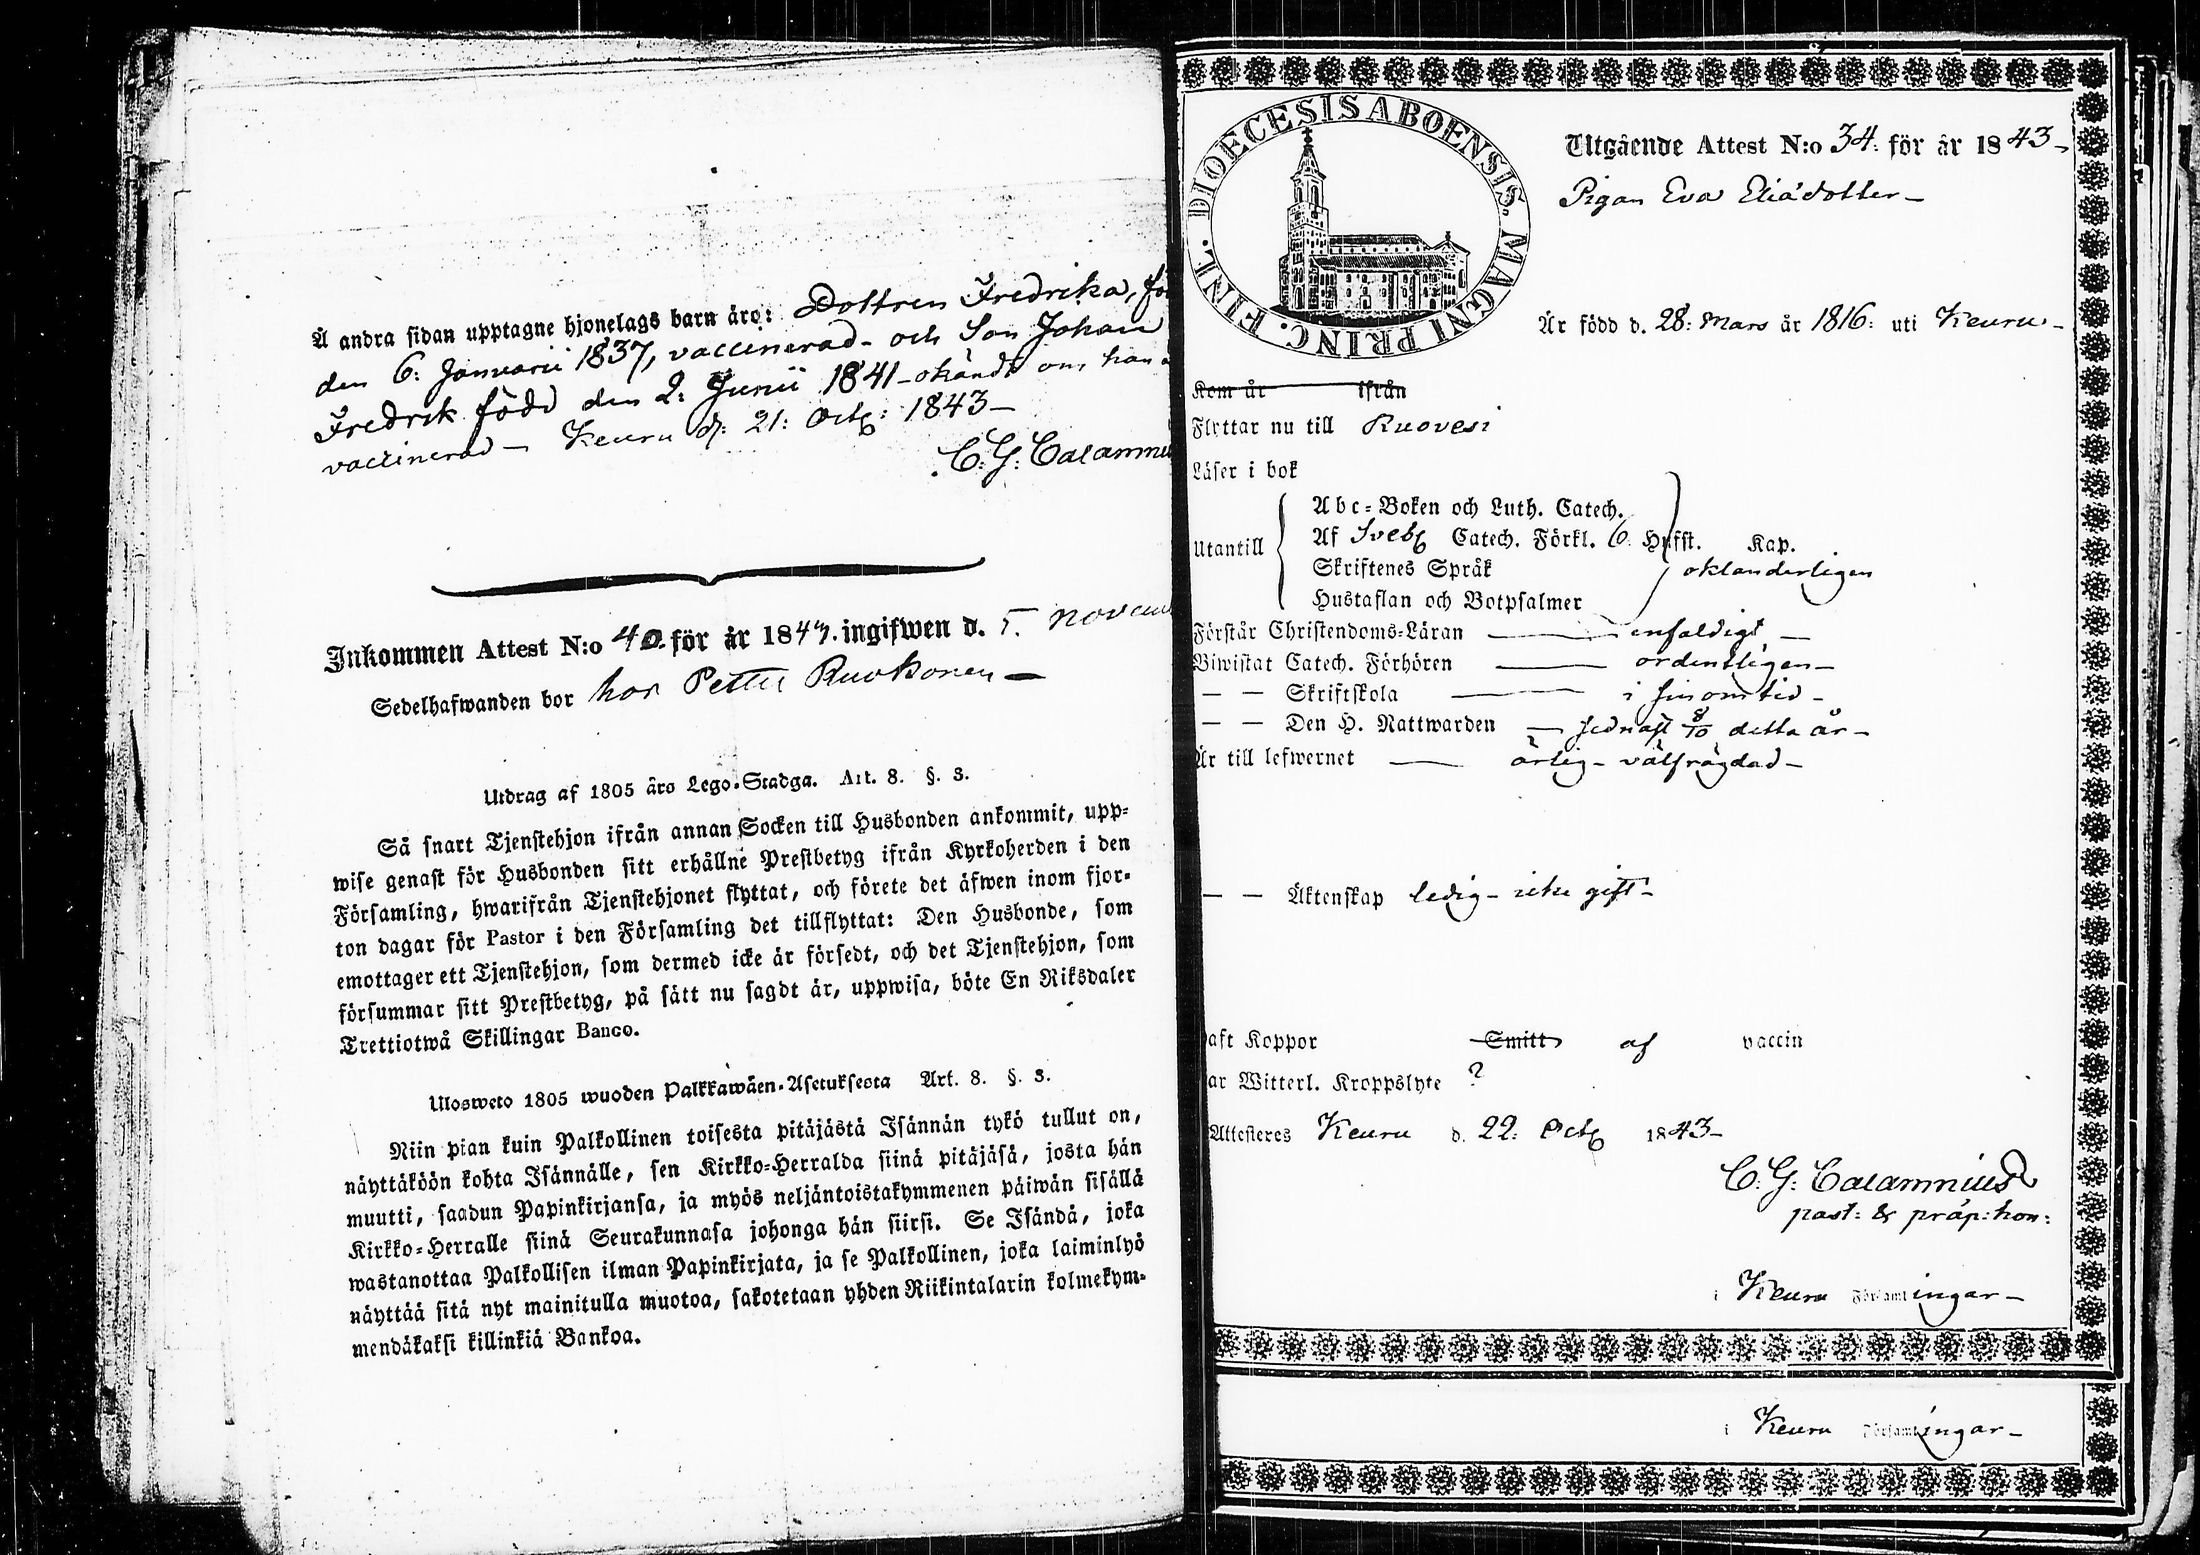 Å andra sidan upptagne hjonelags barn äro: Dottren Fredrika, fö
den 6: Januarii 1837, vaccinerad - och Son Johan
Fredrik född den 2: Junii 1841 - okändt om han
vaccinerad - Keuru d: 21: Octb: 1843 -
C: G: Calamniu
Inkommen Attest N:o 40. för år 1843. ingifwen d. 5. novem
Sedelhafwanden bor hos Petter Ruokonen -
Utdrag af 1805 års Lego-Stadga. Art. 8. §. 3.
Så snart Tjenstehjon ifrån annan Socken till Husbonden ankommit, upp-
wise genast för Husbonden sitt erhållne Prestbetyg ifrån Kyrkoherden i den
Församling, hwarifrån Tjenstehjonet flyttat, och förete det äfwen inom fjor-
ton dagar för Pastor i den Församling det tillflyttat: Den Husbonde, som
emottager ett Tjenstehjon, som dermed icke är försedt, och det Tjenstehjon, som
försummar sitt Prestbetyg, på sätt nu sagdt är, uppwisa, böte En Riksdaler
Trettiotwå Skillingar Banco.
Ulosweto 1805 wuoden Palkkawäen-Asetuksesta Art. 8. §. 3.
Niin pian kuin Palkollinen toisesta pitäjästä Isännän tykö tullut on,
näyttäköön kohta Isännälle, sen Kirkko-Herralda siinä pitäjäsä, josta hän
muutti, saadun Papinkirjansa, ja myös neljäntoistakymmenen päiwän sisällä
Kirkko-Herralle siinä Seurakunnasa johonga hän siirsi. Se Isändä, joka
wastanottaa Palkollisen ilman Papinkirjata, ja se Palkollinen, joka laiminlyö
näyttää sitä nyt mainitulla muotoa, sakotetaan yhden Riikintalarin kolmekym-
mendäkaksi killinkiä Bankoa.
DIOECESIS ABOENSIS. MAGNI PRINC. FINL.
Utgående Attest N:o 34: för år 1843 -
Pigan Eva Eliædotter -
Är född d. 28: Mars år 1816: uti Keuru -
Kom år ifrån
Flyttar nu till Ruovesi
Läser i bok
Utantill
Abc-Boken och Luth. Catech.
Af Sveb Catech. Förkl. 6 Hufst. Kap.
Skriftenes Språk oklanderligen
Hustaflan och Botpsalmer
Förstår Christendoms-Läran — enfaldigt —
Biwistat Catech. Förhören — ordentligen -
— — Skriftskola — i sinom tid -
— — Den H. Nattwarden — sednast 8/10 detta år -
Är till lefwernet — ärlig - välfrägdad -
— — Äktenskap ledig - icke gift -
aft Koppor Smitt af vaccin
ar Witterl. Kroppslyte ?
Attesteres Keuru d. 22: Octb 1843 -
C: G: Calamnius
past: & präp: hon:
i Keuru Församlingar -
i Keuru Församlingar -